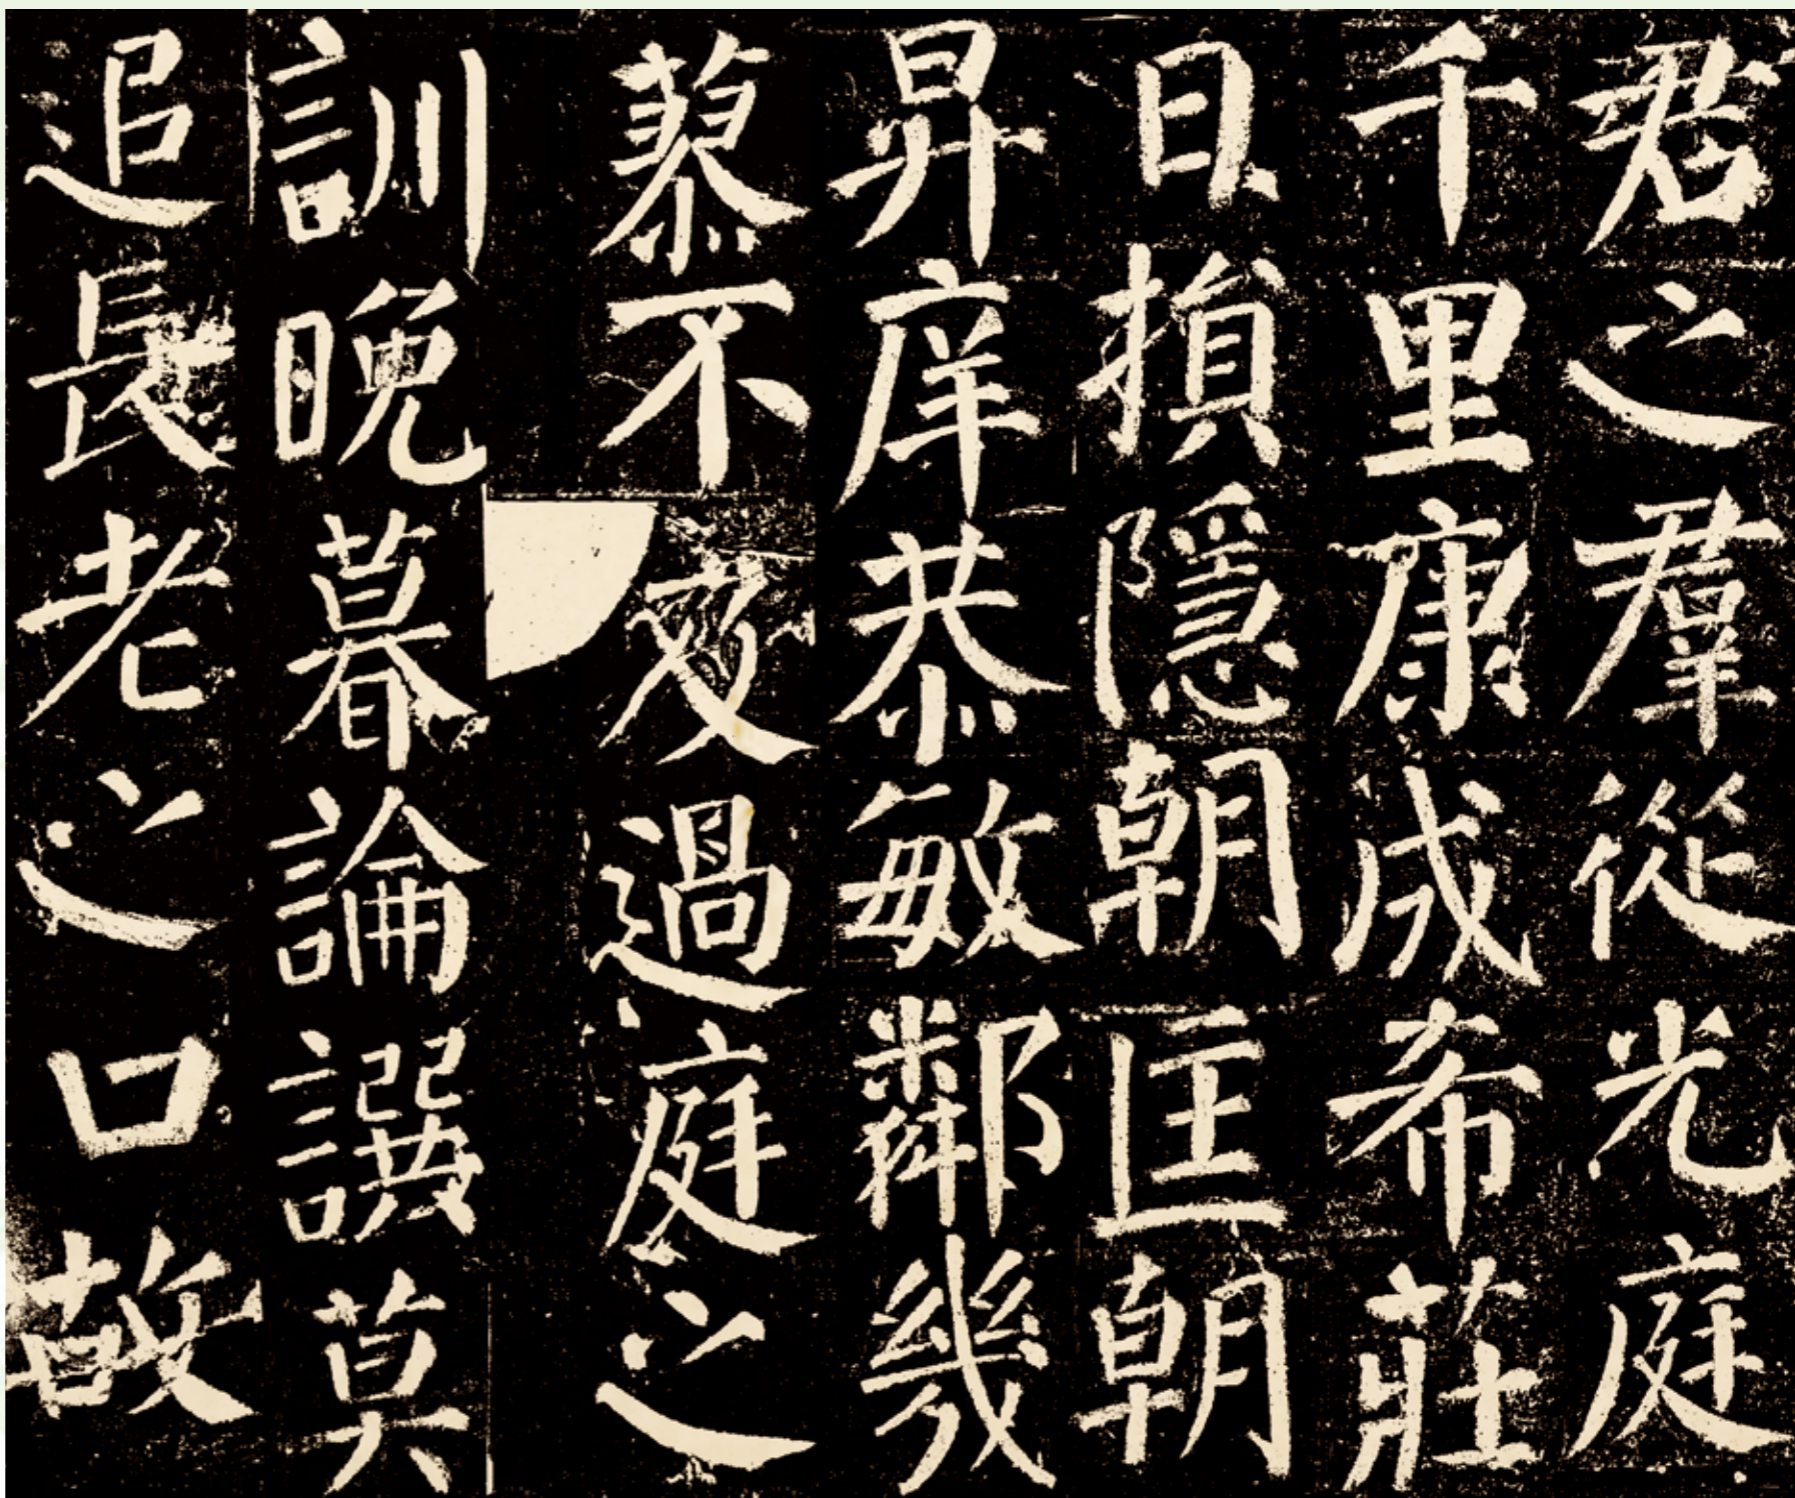 君之羣從光庭
千里康成希莊
日損隱朝匡朝
昇庠恭敏鄰幾
蓼不及過庭之
訓晚暮論譔莫
追長老之口故